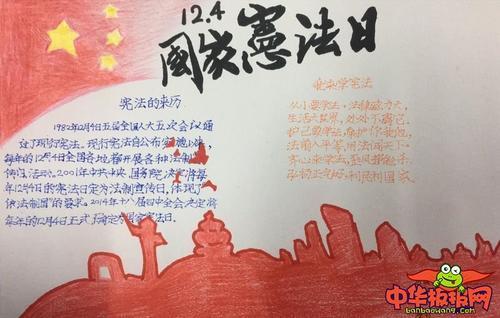 12.4
國家憲法日
宪法的来历
1982年12月4日五届全国人大五次会议通
过了现行宪法。现行宪法自公布实施以来,
每年的12月4日全国各地都开展各种法制
宣传活动。2001年中共中央、国务院决定将每
年12月4日的宪法日定为法制宣传日,体现了
"依法制国"的要求。2014年十八届四中全会决定将
每年的12月4日正式确定为国家宪法日。
来学宪法
从小要学法,法律威力大,
生活大世界,处处不离它。
护己要学法,保护你我他,
法前人平等,用法闯天下。
齐心来学法,歪风
弘扬正气,利民利国家
中华报报网
banbaowang.com